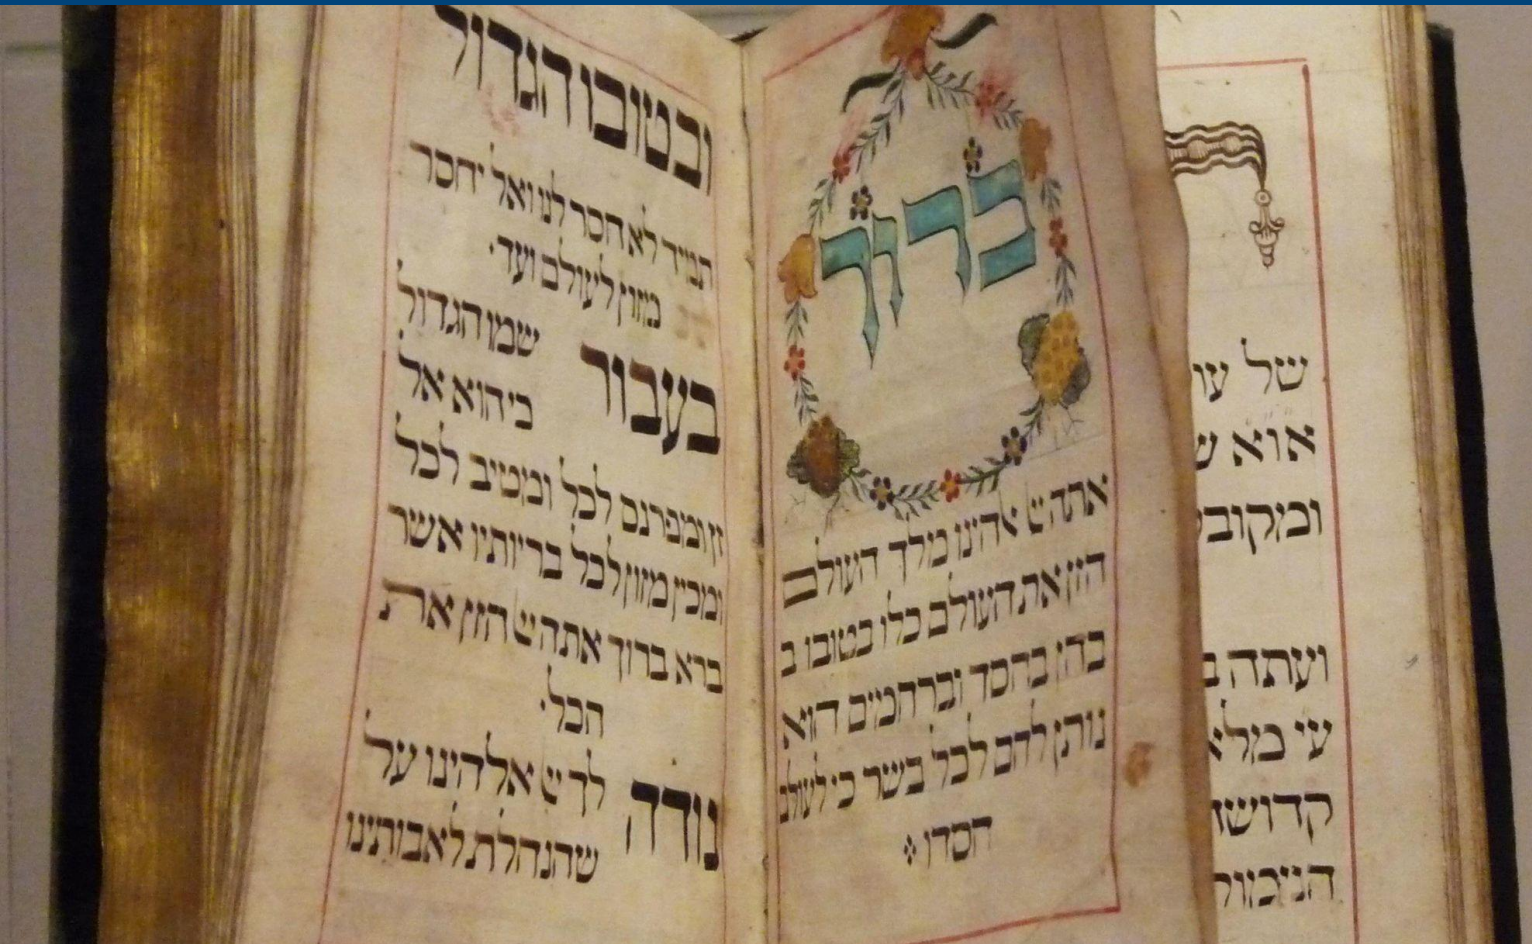 של עו
אוא ש
ומקוב
ועתה ב
עי מלא
קדוש
הגימול
ברוך
אתה יי אלהינו מלך העולם
הזן את העולם כלו בטובו ב
בחן בחסד וברחמים הוא
נותן להם לכל בשר כי לעולם
חסדו
ובטובו הגדול
תמיד לא חסר לנו ואל יחסר
מזון לעולם ועד·
בעבור שמו הגדול
כי הוא אל
זן ומפרנס לכל ומטיב לכל
ומכין מזון לכל בריותיו אשר
ברא ברוך אתה יי הזן את
הכל·
נודה לך יי אלהינו על
שהנחלת לאבותינו